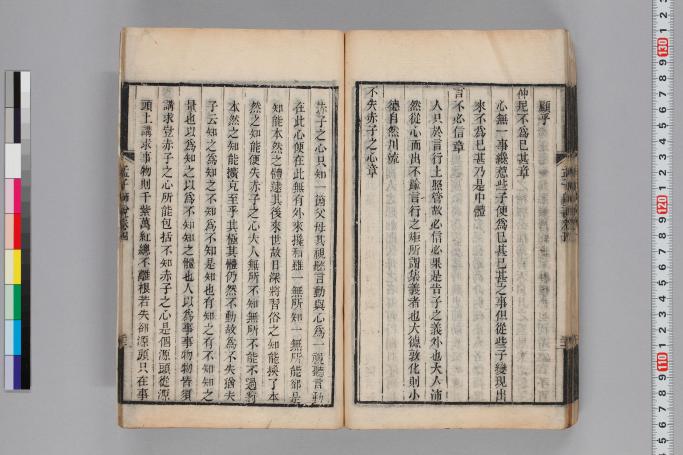 顯乎
仲尼不為已甚章
心無一事纔惹些子便為已甚已甚之事但從些子變現出
來不為已甚乃是中體
言不必信章
人只於言行上照管故必信必果是告子之義外也大人
然從心而出不踰言行之矩所謂集義者也大德敦化則小
德自然川流
不失赤子之心章
赤子之心只知一箇父母其視聽言動與心為一視聽言動
在此心便在此無外來攙和雖一無所知一無所能卻是
知能本然之體逮其後來世故日深將習俗之知能換了本
然之知能便失赤子之心大人無所不知無所不能不過將
本然之知能擴充至乎其極其體仍然不動故為不失猶夫
子云知之為知之不知為不知是知也有知之有不知知之
量也以為知之以為不知知之體也人以為事事物物皆須
講求豈赤子之心所能包括不知赤子之心是個源頭從源
頭上講求事物則千紫萬紅總不離根若失卻源頭只在事
孟子師說卷四